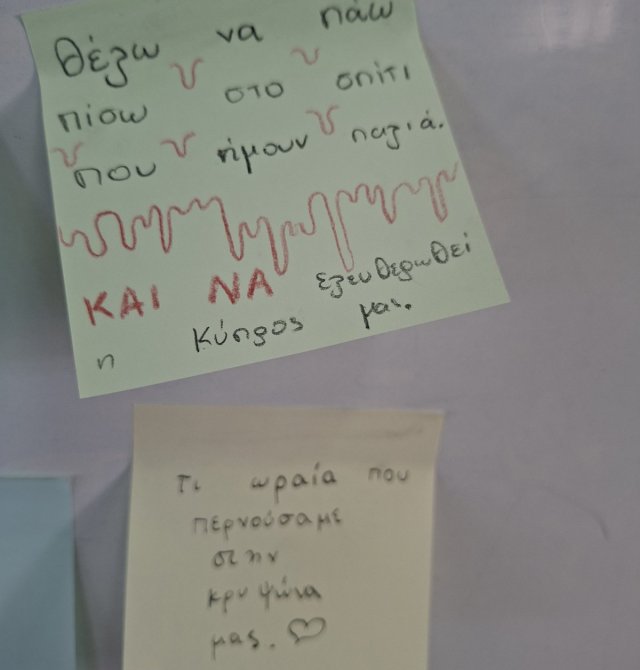 θέλω να πάω
πίσω στο σπίτι
που ήμουν παλιά.
ΚΑΙ ΝΑ ελευθερωθεί
η Κύπρος μας.
τι ωραία που
περνούσαμε
στην
κρυψώνα
μας.